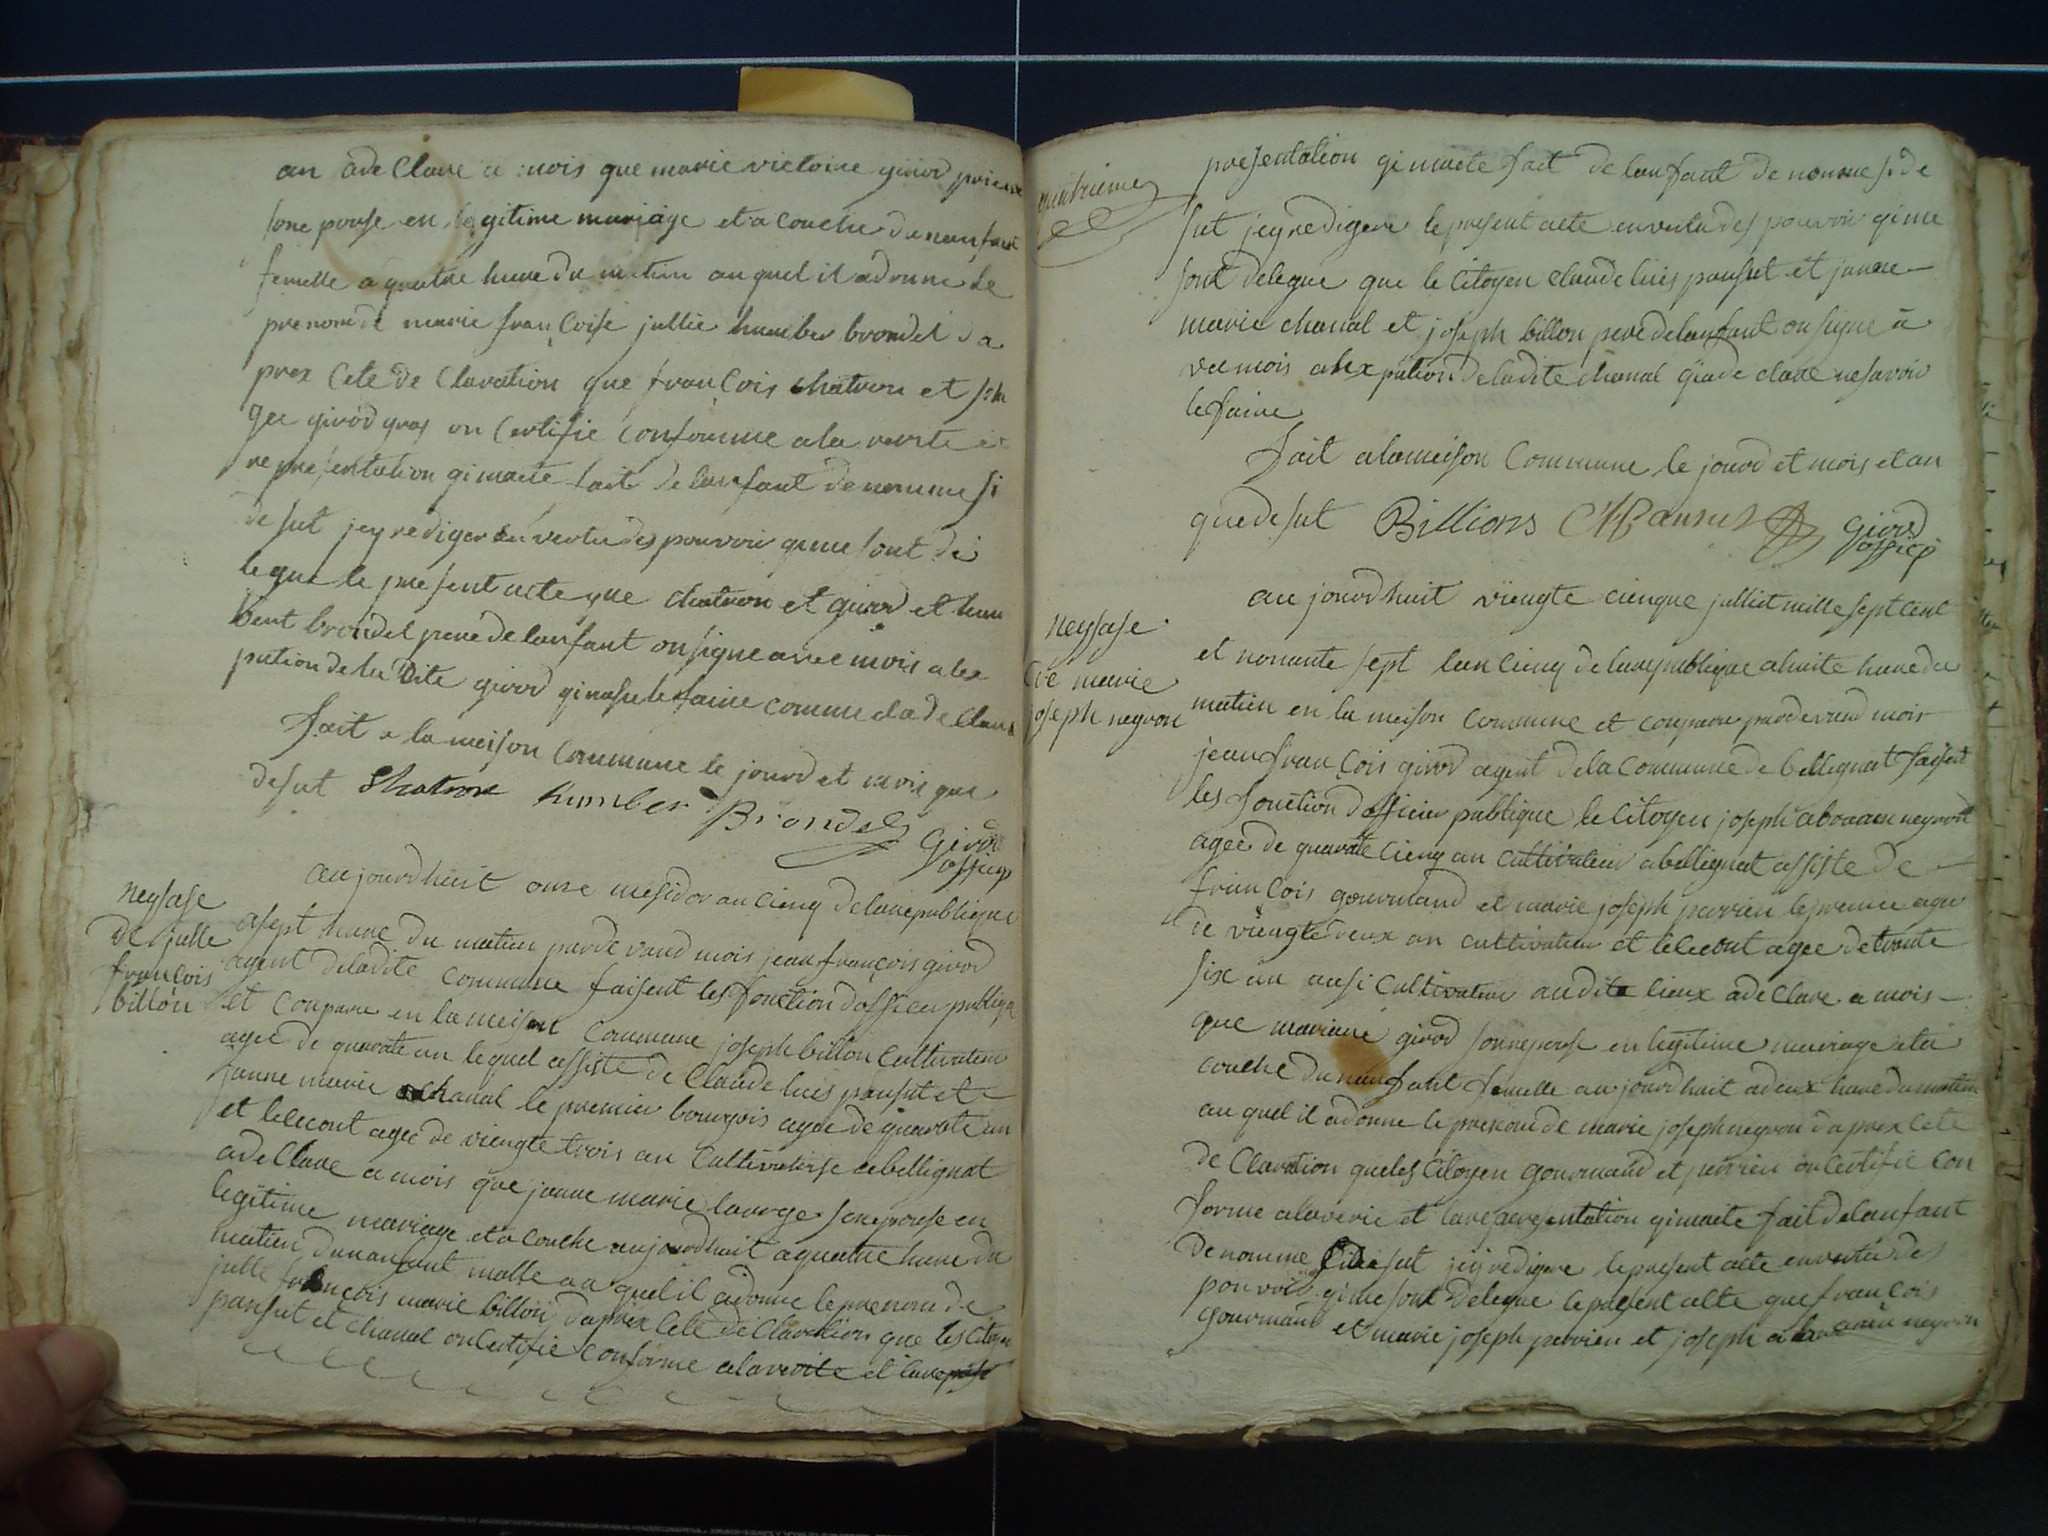 an ade Clare a mois que marie victoire girod
sone pouse en legitime mariage et a couche du nanfant
femelle a quatre heure du matin au quel il adonne le
prenom de marie francoise jullie humber brondel da
prex cete de Claration que francois chatron et
girod gros on Certifie Conforme a la verite et
representation gi maete fait de lanfant denomme si
desut jey rediger en vertu des pouvoir qi me sont de
legue le present acte que chatron et girod et hum
bert brondel pere de lanfant on signe avec mois a lex
pution de la dite girod gi nasu le faire comme el a de Clare
fait a la meison Commune le jourd et mois que
desut Chatron humber Brondel Girod
officip
neysase
de julle
francois
billon
au jourdhuit onze mesidor an cienq de la republique
a sept hure du matien parde vand mois jean francois girod
agent deladite commune faisent les fonction dofficier publique
et conpare en la meison Commune joseph billon Cultivateur
agee de quarate an lequel assiste de Claude luis pansut et
janne marie chanal le premier bourgois agee de quarate an
et lececont agee de viengte trois an Cultivatrise a bellignat
adeClare a mois que janne marie lavorge son epouse en
legitime mariage et a couche aujourdhuit a quatre hure du
matien dunanfant malle au quel il adonne le prenom de
julle francois marie billon daprex Cete deClaration que les Citoyen
pansut et chanal on Certifie conforme alaverite et lareprese
quatrieme
presentation gi maete fait de lanfant denomme si de
sut jey redigere le present acte en vertu des pouvoir gi me
sont delegue que le Citoyen claude luis pansut et janne
marie chanal et joseph billon pere delanfant on signe a
vec mois alex pution de ladite chanal gi a de clare ne savoir
le faire
fait alameison Commune le jourd et mois et an
que de sut Billions Cl Pansut Girod
officip
neysase
de marie
joseph neyron
au jourdhuit viengte cienque julliet mille sept cent
et nonante sept lan cienq de la republique ahuite hure du
matien en la meison Commune et conpare pardevand mois
jean francois girod agent de la Commune de bellignat faisent
les fonction dofficier publique le Citoyen joseph abraam neyron
agee de quarate cienq an cultivateur a bellignat assiste de
francois gourmand et marie joseph perrien le premier agee
de viengte deux an cultivateur et lececont agee de trante
six an ausi Cultivateur au dite lieux adeClare a mois
que mariane girod sonnepouse en legitime mariage et a
couche du nanfant femelle au jourdhuit a deux hure du matien
au quel il adonne le prenom de marie joseph neyron daprex Cete
de Claration que les Citoyen gourmand et perrien on Certifie Con
forme alaverite et la representation gi maete fait delanfant
denomme sut jey redigere le present acte en vertu des
pouvoir gi me sont delegue le present acte que francois
gourmand et marie joseph perrien et joseph abraam neyron